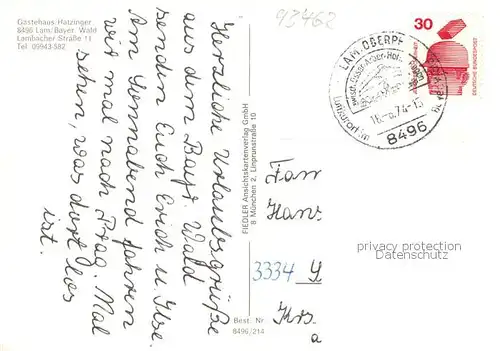 Gästehaus Hatzinger
8496 Lam/Bayer. Wald
Lambacher Straße 11
Tel. 09943-582
Herzliche Urlaubsgrüße
aus dem Bayr. Wald
senden Euch Erich u. Ilse.
Am Sonnabend fahren
wir mal nach Prag. Mal
sehen, was dort los
ist.
FIEDLER Ansichtskartenverlag GmbH
8 München 2, Linprunstraße 10
Best. Nr
8496/214
93462
30
DEUTSCHE BUNDESPOST
LAM, OBERPF
Luftkurort im
74-15
8496
Fam
Hans
3334
Krs.
a
privacy protection
watermark